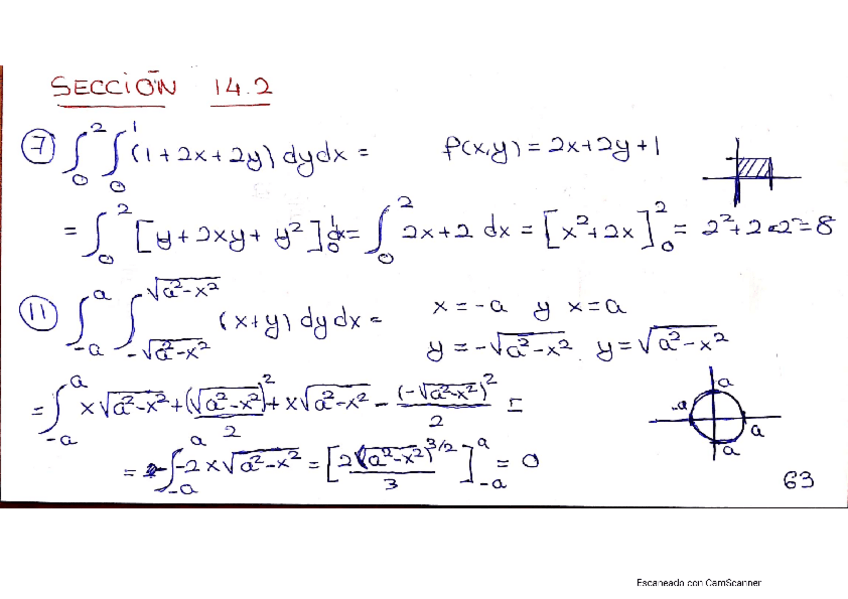 SECCIÓN 14.2
⑦ ∫₀² ∫₀¹ (1 + 2x + 2y) dydx = f(x,y) = 2x+2y+1
= ∫₀² [y + 2xy + y²]₀¹ dx = ∫₀² 2x+2 dx = [x²+2x]₀² = 2²+2·2 = 8
⑪ ∫₋ₐᵃ ∫_{-√(a²-x²)}^{√(a²-x²)} (x+y) dydx = x = -a y x = a
y = -√(a²-x²) . y = √(a²-x²)
= ∫₋ₐᵃ x√(a²-x²) + (√(a²-x²))²/2 + x√(a²-x²) - (-√(a²-x²))²/2 =
a
-a a
a
= - ∫₋ₐᵃ -2x√(a²-x²) = [2(√(a²-x²))^{3/2}/3]₋ₐᵃ = 0
63
Escaneado con CamScanner